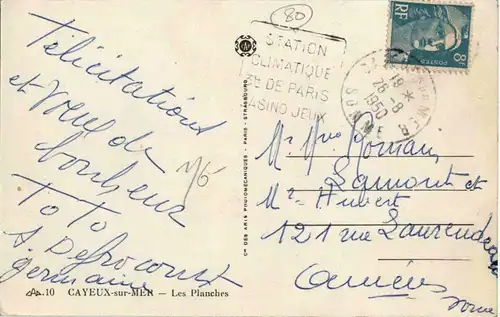 80
STATION
CLIMATIQUE
DE PARIS
CASINO JEUX
19 *
26-8
1950
SOMME
RF
POSTES
8F
Félicitations
et vœux de
bonheur
To To
Germaine
M6
Mr Mme Romain
Lamont et
Mr Hubert
121 rue Laurendeau
Amiens
Somme
CIE DES ARTS PHOTOMÉCANIQUES - PARIS - STRASBOURG
10 CAYEUX-sur-MER — Les Planches